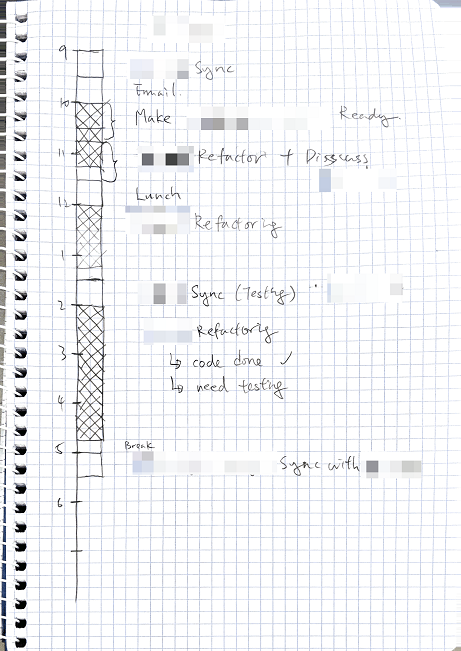 9
Sync
Email.
10
Make Ready.
11
Refactor + Disscuss
Lunch
12
Refactoring
1
Sync (Testing)
2
Refactoring
3
↳ code done ✓
↳ need testing
4
Break
5
Sync with
6